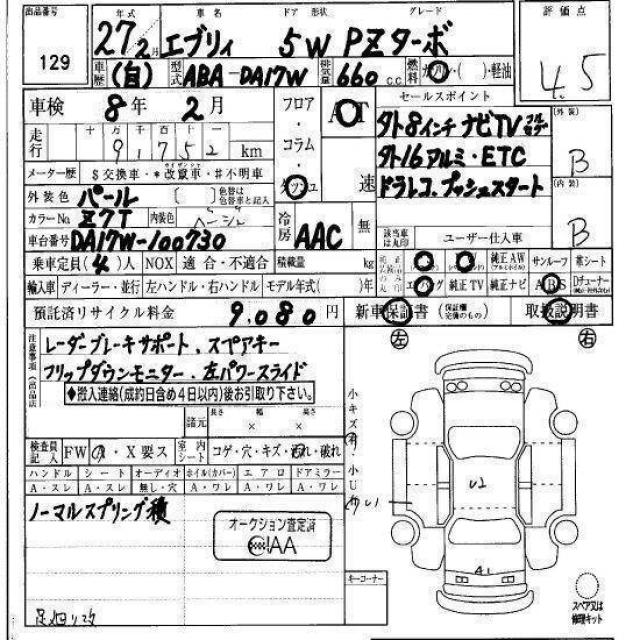 出品番号 年式 車名 ドア 形状 グレード 評価点
129 27年2月 エブリィ 5W PZターボ 4.5
車歴 (自) 型式 ABA-DA17W 排気量 660 c.c. 燃料 ガソリン・( )・軽油
車検 8年 2月 フロア・コラム・ AT 速
セールスポイント
タト8インチナビTVフルセグ 外装 B
走行 十 万 千 百 十 一
9 1 7 5 2 km
タト16アルミ・ETC
メーター歴 $交換車・*改竄車・#不明車
ドラレコ.プッシュスタート 内装 B
外装色 パール [ ] 色替は色替車と記入
カラーNo. Z7T 内装色 ベージュ 冷房 AAC 無
該当車は丸印 ユーザー仕入車
車台番号 DA17W-100730
乗車定員(4)人 NOX 適合・不適合 積載量 kg
純正AW サンルーフ 革シート
輸入車 ディーラー・並行 左ハンドル・右ハンドル モデル年式( )年
エアバッグ 純正TV 純正ナビ ABS Dチューナー
預託済リサイクル料金 9,080円 新車保証書(保証欄完備のもの) 取扱説明書
左 右
注意事項(出品店)
レーダーブレーキサポート、スペアキー
フリップダウンモニター・左パワースライド
◆搬入連絡(成約日含め4日以内)後お引取り下さい。
諸元 長さ × 幅 × 高さ
検査員記入 FW X・X要ス 室内シート コゲ・穴・キズ・汚れ・破れ
ハンドル シート オーディオ ホイル(カバー) エアロ ドアミラー
A・スレ A・スレ 無し・穴 A・ワレ A・ワレ A・ワレ
小キズ 小U
U2
ノーマルスプリング積
オークション査定済
AA
A1
キーコーナー
スペア又は修理キット